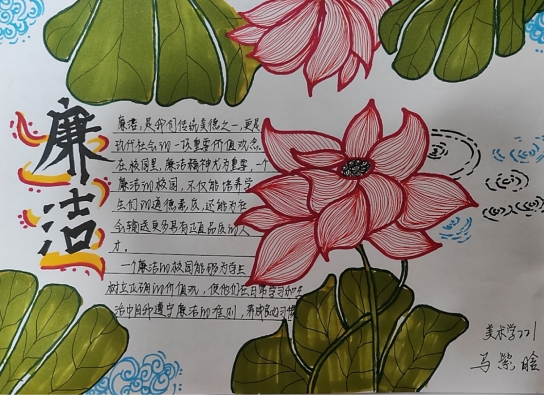 廉洁
廉洁,是我们传统美德之一,更是
现代社会的一项重要价值观念.
在校园里,廉洁精神尤为重要,一个
廉洁的校园,不仅能培养学
生们的道德素质,还能为社
会输送更多具有正直品质的人
才.
一个廉洁的校园能够为学生
树立正确的价值观,使他们在日常学习和生
活中自觉遵守廉洁的准则,养成良好习惯
美术学221
马紫晗